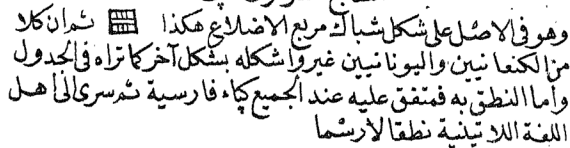 وهو في الاصل على شكل شباك مربع الاضلاع هكذا ثم ان كلا
من الكنعانيين واليونانيين غيروا شكله بشكل آخر كما تراه في الجدول
وأما النطق به فمتفق عليه عند الجميع كباء فارسية ثم سرى الى اهل
اللغة اللاتينية نطقا لا رسما